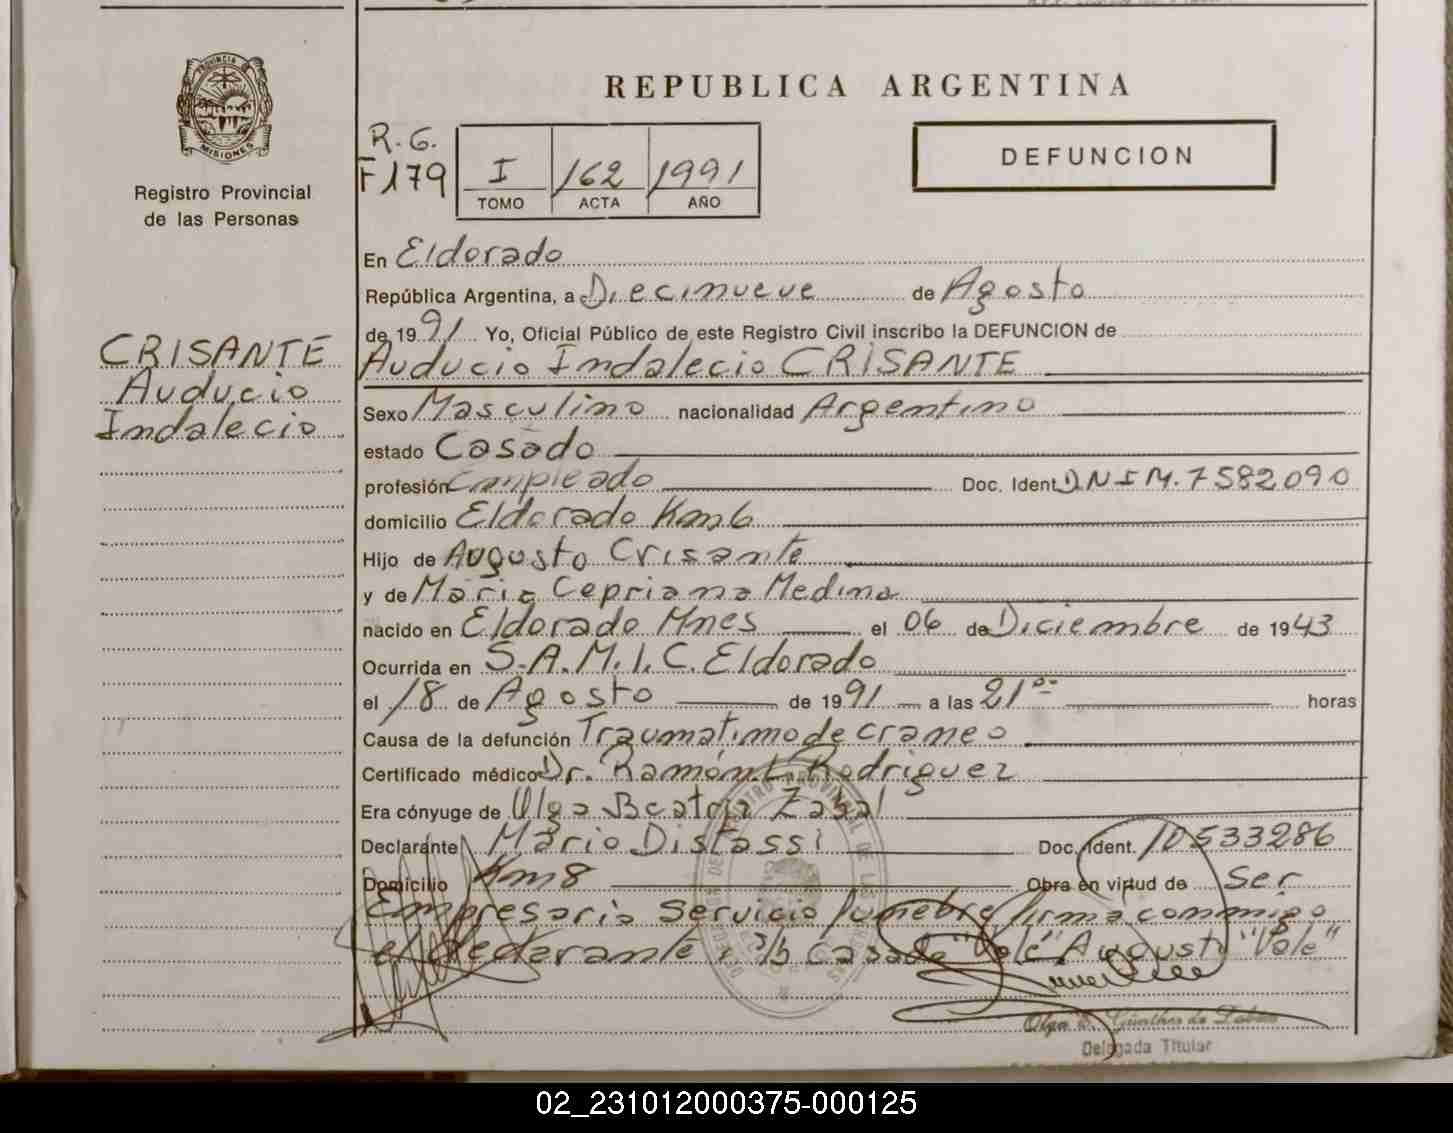 PROVINCIA DE
MISIONES
Registro Provincial
de las Personas
CRISANTE
Auducio
Indalecio
REPUBLICA ARGENTINA
R.G.
F 179
I 162 1991
TOMO ACTA AÑO
DEFUNCION
En Eldorado
República Argentina, a Diecinueve de Agosto
de 1991 Yo, Oficial Público de este Registro Civil inscribo la DEFUNCION de
Auducio Indalecio CRISANTE
Sexo Masculino nacionalidad Argentino
estado Casado
profesión Empleado Doc. Ident. DNI M. 7582090
domicilio Eldorado Km 6
Hijo de Augusto Crisante
y de Maria Cepriana Medina
nacido en Eldorado Mnes el 06 de Diciembre de 1943
Ocurrida en S.A.M.I.C. Eldorado
el 18 de Agosto de 1991 a las 21 oo horas
Causa de la defunción Traumatimo de craneo
Certificado médico Dr. Ramón L. Rodriguez
Era cónyuge de Olga Beatriz Zabal
Declarante Mario Distassi Doc. Ident. 10533286
Domicilio Km 8 Obra en virtud de Ser
Empresario Servicio funebre firma conmigo
el declarante s/b casado "Vale" Augusto "Vale"
Olga Günther de
Delegada Titular
02_231012000375-000125